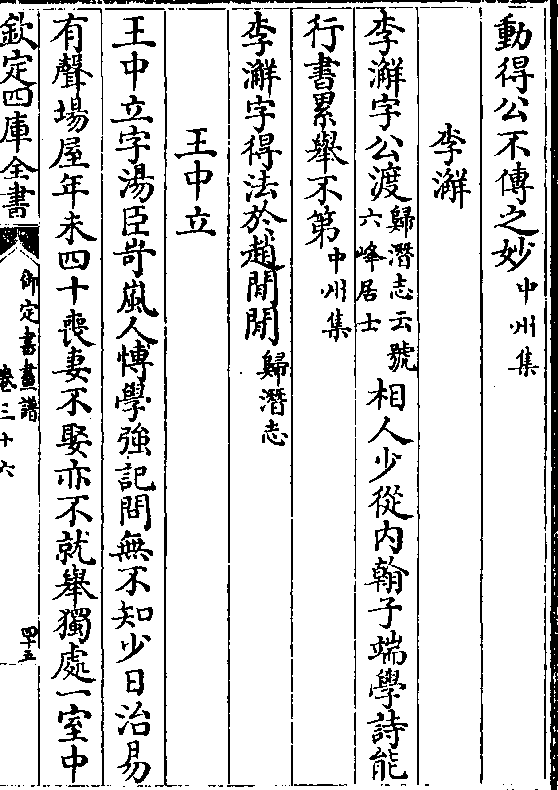 動得公不傳之妙中州集
李澥
李澥字公渡歸潛志云號六峰居士相人少從内翰子端學詩能
行書累舉不第中州集
李澥字得法於趙閒閒歸潛志
王中立
王中立字湯臣岢嵐人博學強記問無不知少日治易
有聲塲屋年未四十喪妻不娶亦不就舉獨處一室中
欽定四庫全書
御定書畫譜
卷三十六
四十五